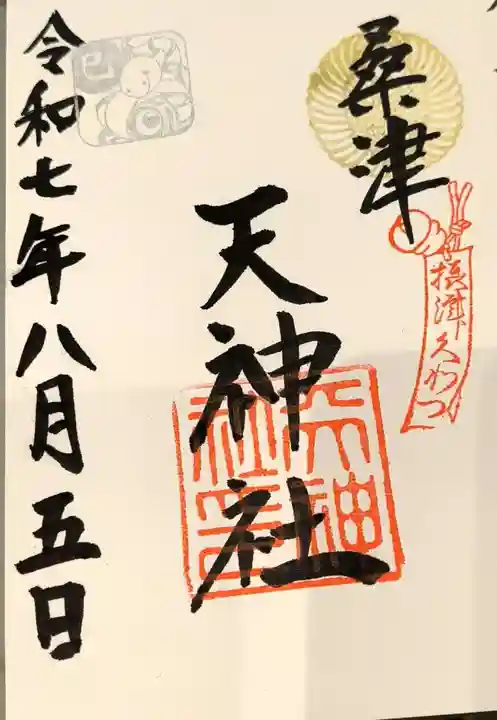 桑津
摂津久わつ
天神社
天神社印
巳
令和七年八月五日